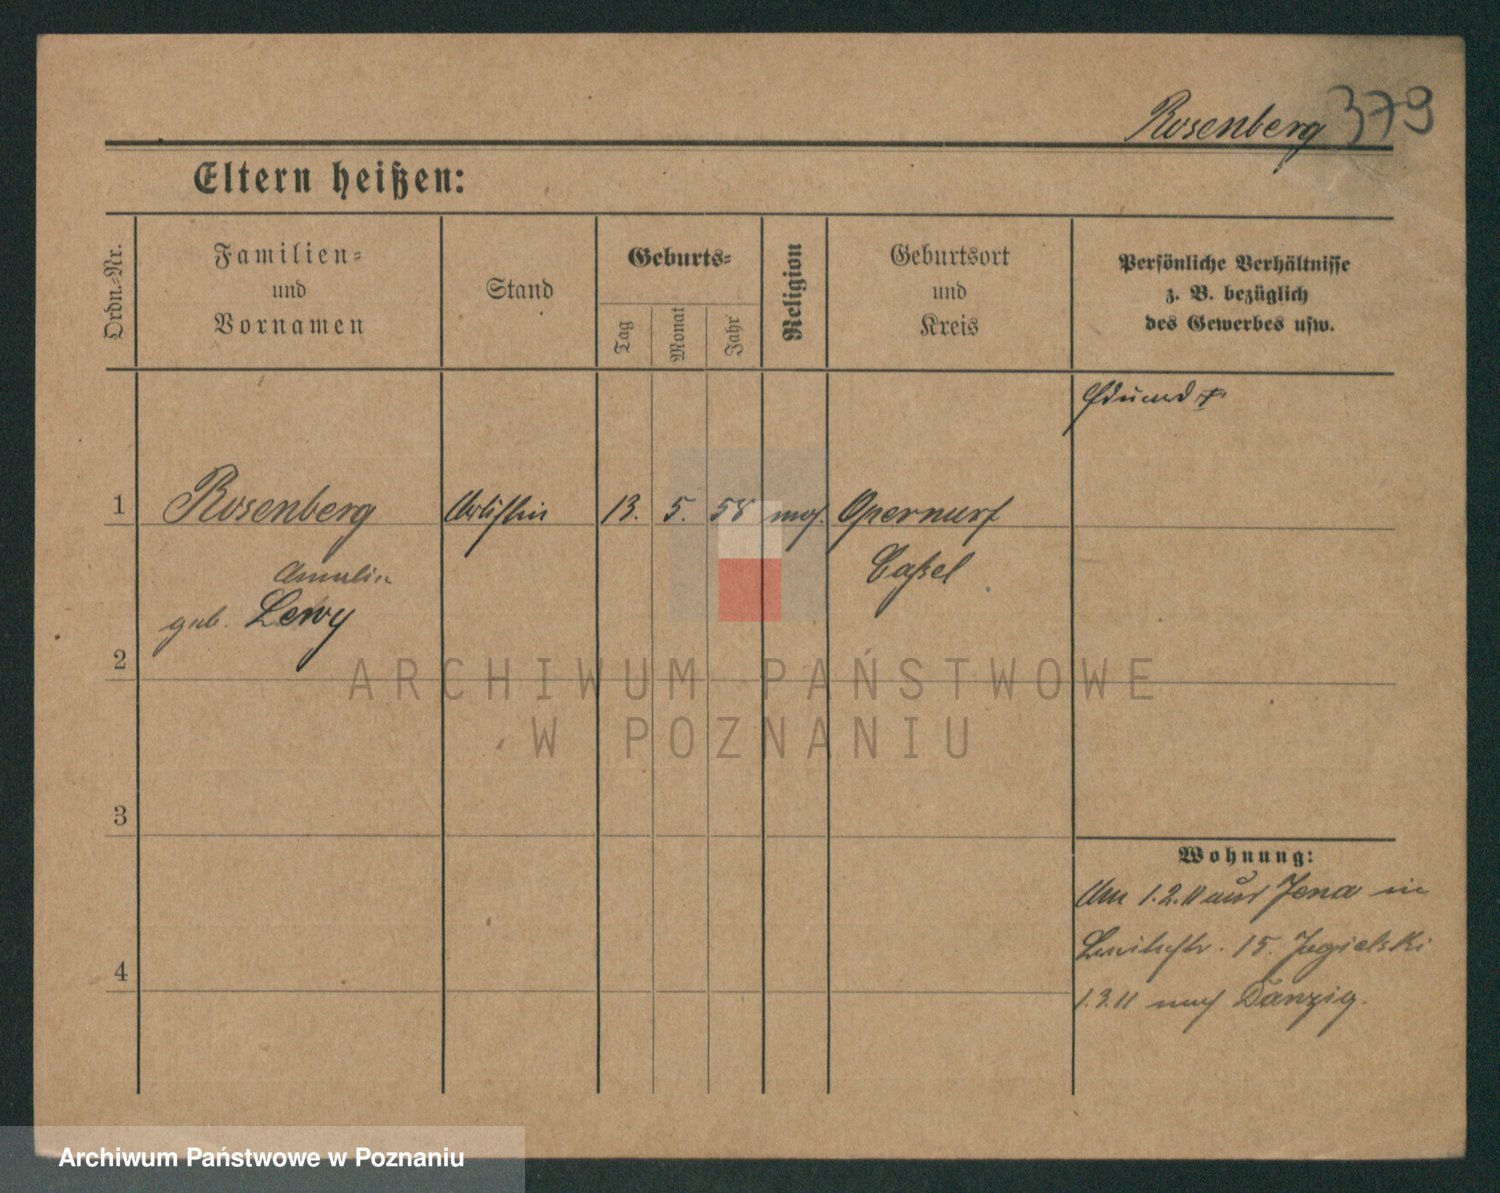 Rosenberg 379
Eltern heißen:
Ordn.-Nr.
Familien-
und
Vornamen
Stand
Geburts-
Tag
Monat
Jahr
Religion
Geburtsort
und
Kreis
Persönliche Verhältnisse
z. B. bezüglich
des Gewerbes usw.
1
Rosenberg
Artistin
13. 5. 58
mos.
Cassel
geb. Lewy
2
3
4
Wohnung:
Am 1.2.11 aus Jena in
15. Jagielski
1.3.11 nach Danzig.
ARCHIWUM PAŃSTWOWE
W POZNANIU
Archiwum Państwowe w Poznaniu